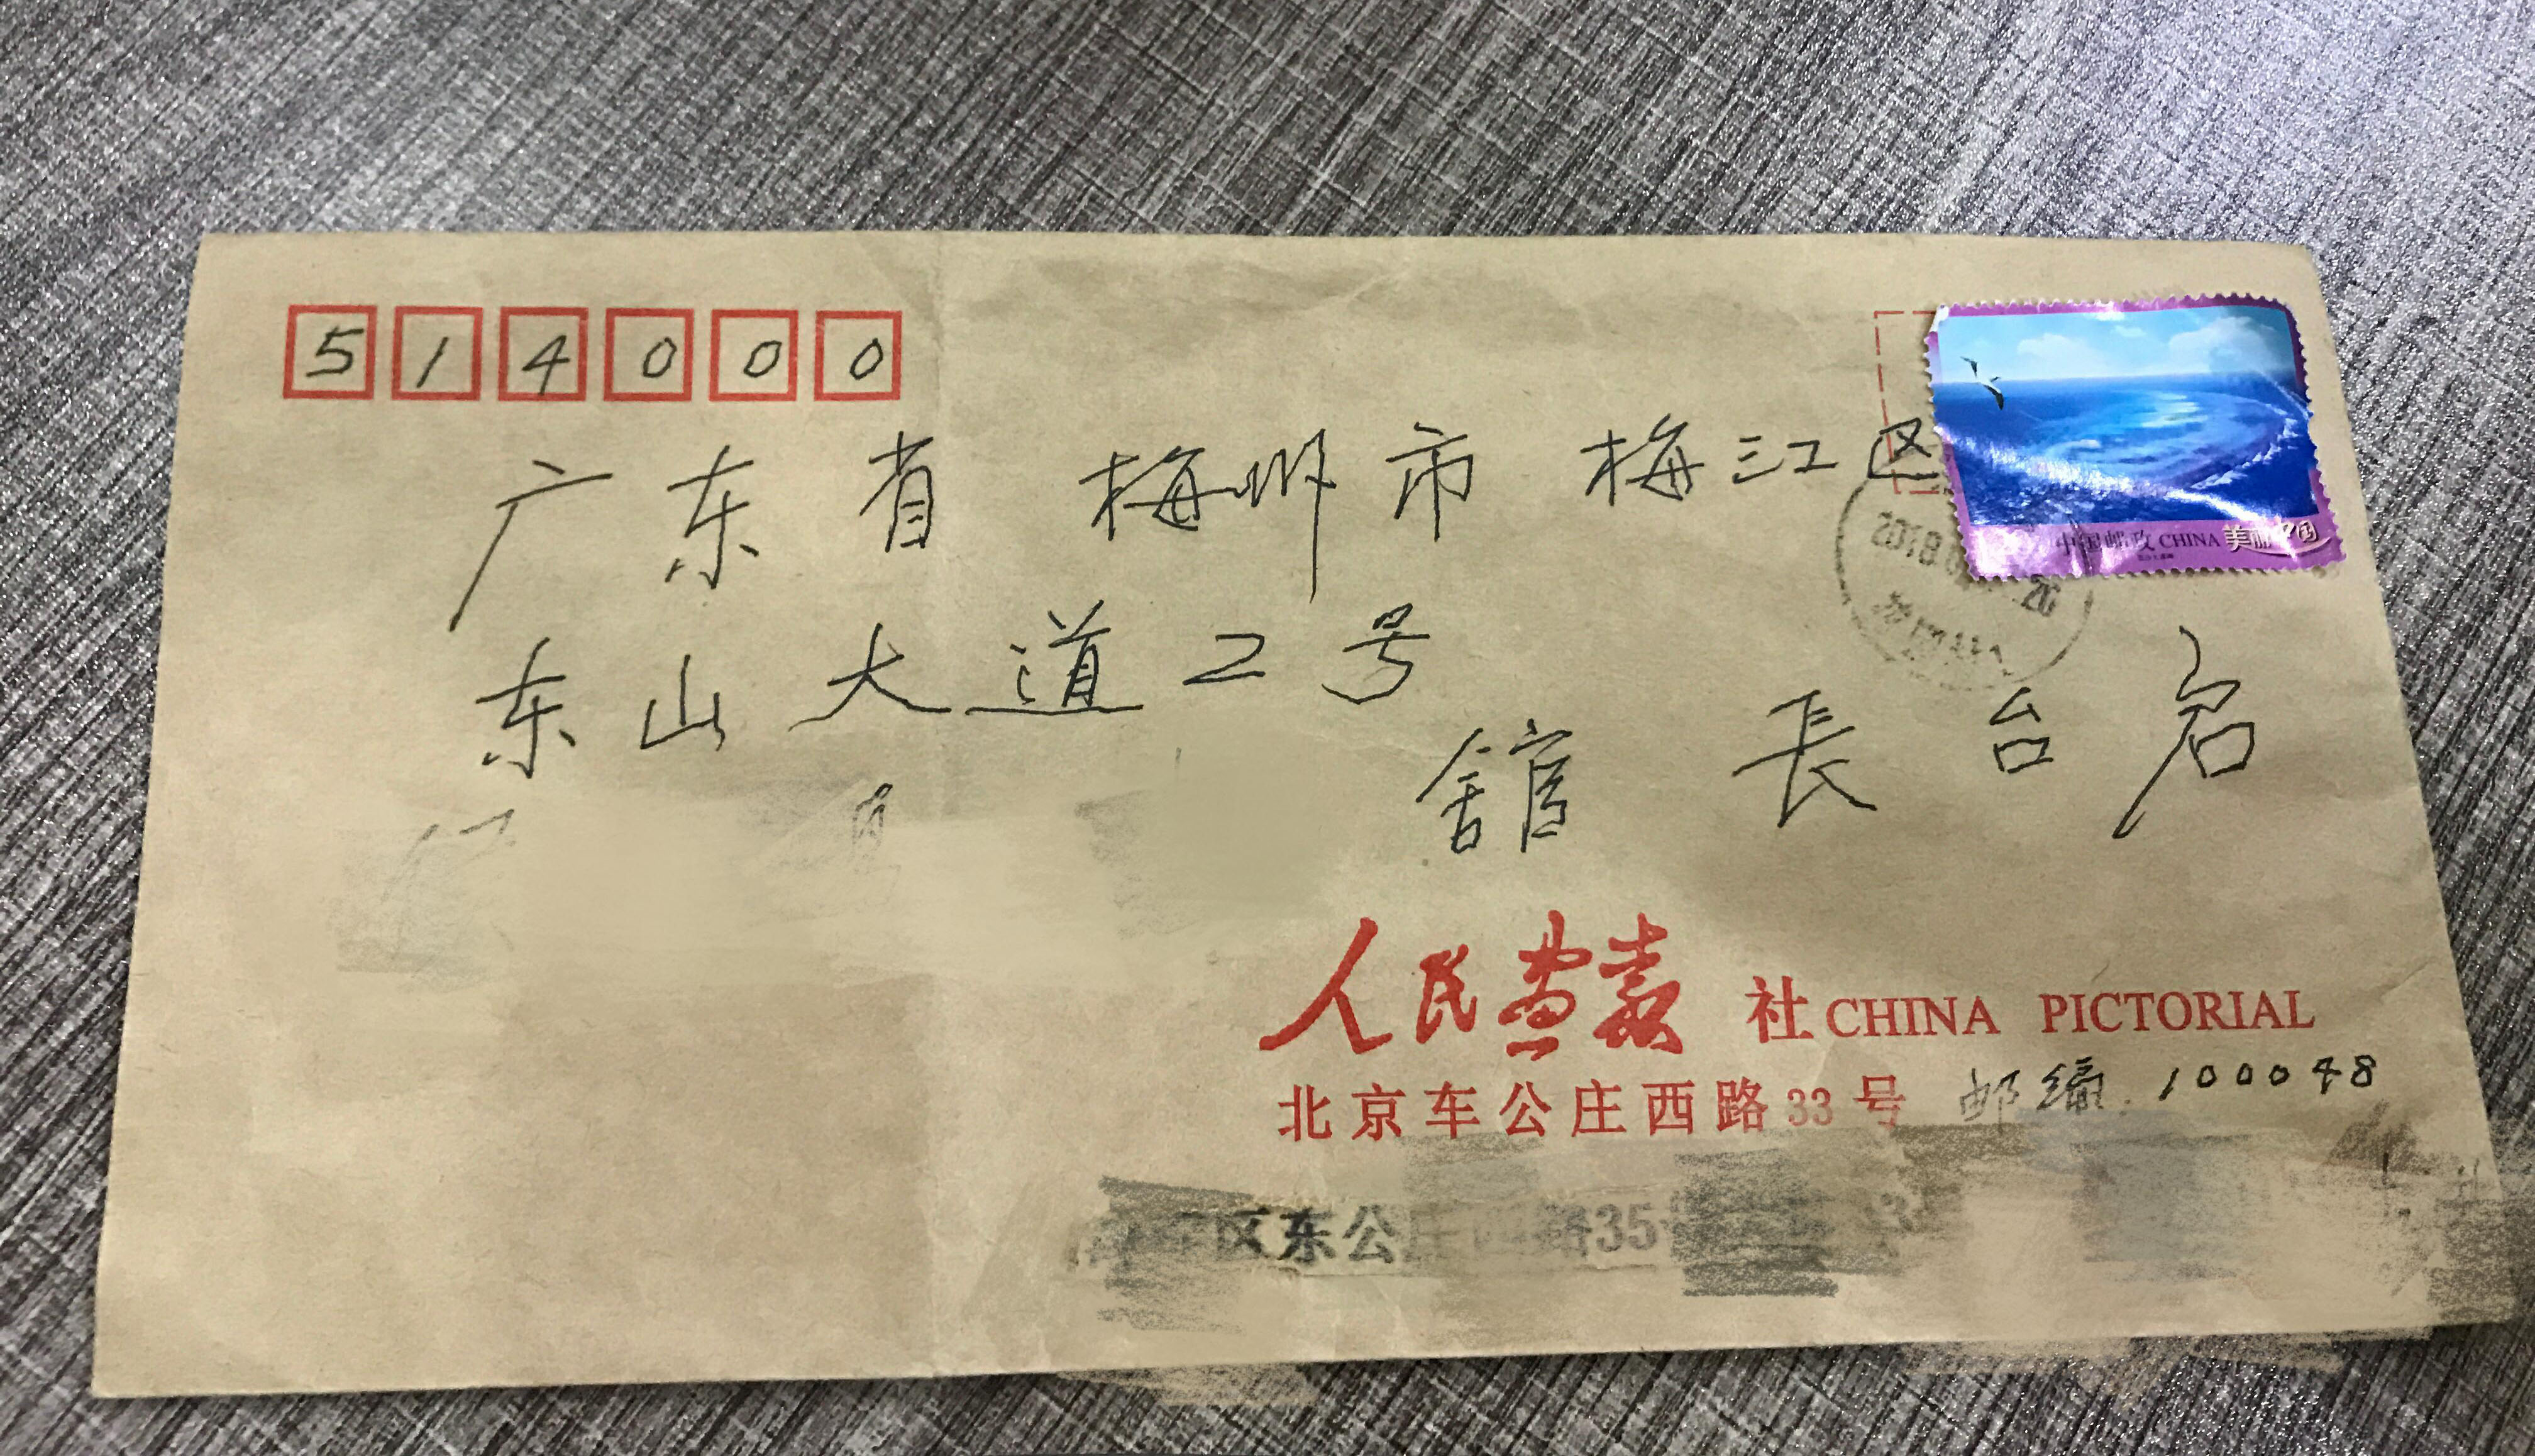 514000
广东省 梅州市 梅江区
东山大道2号
舘長台启
中国邮政 CHINA 美丽中国
2018
人民画报社 CHINA PICTORIAL
北京车公庄西路33号 邮编.100048
区东公庄西路35